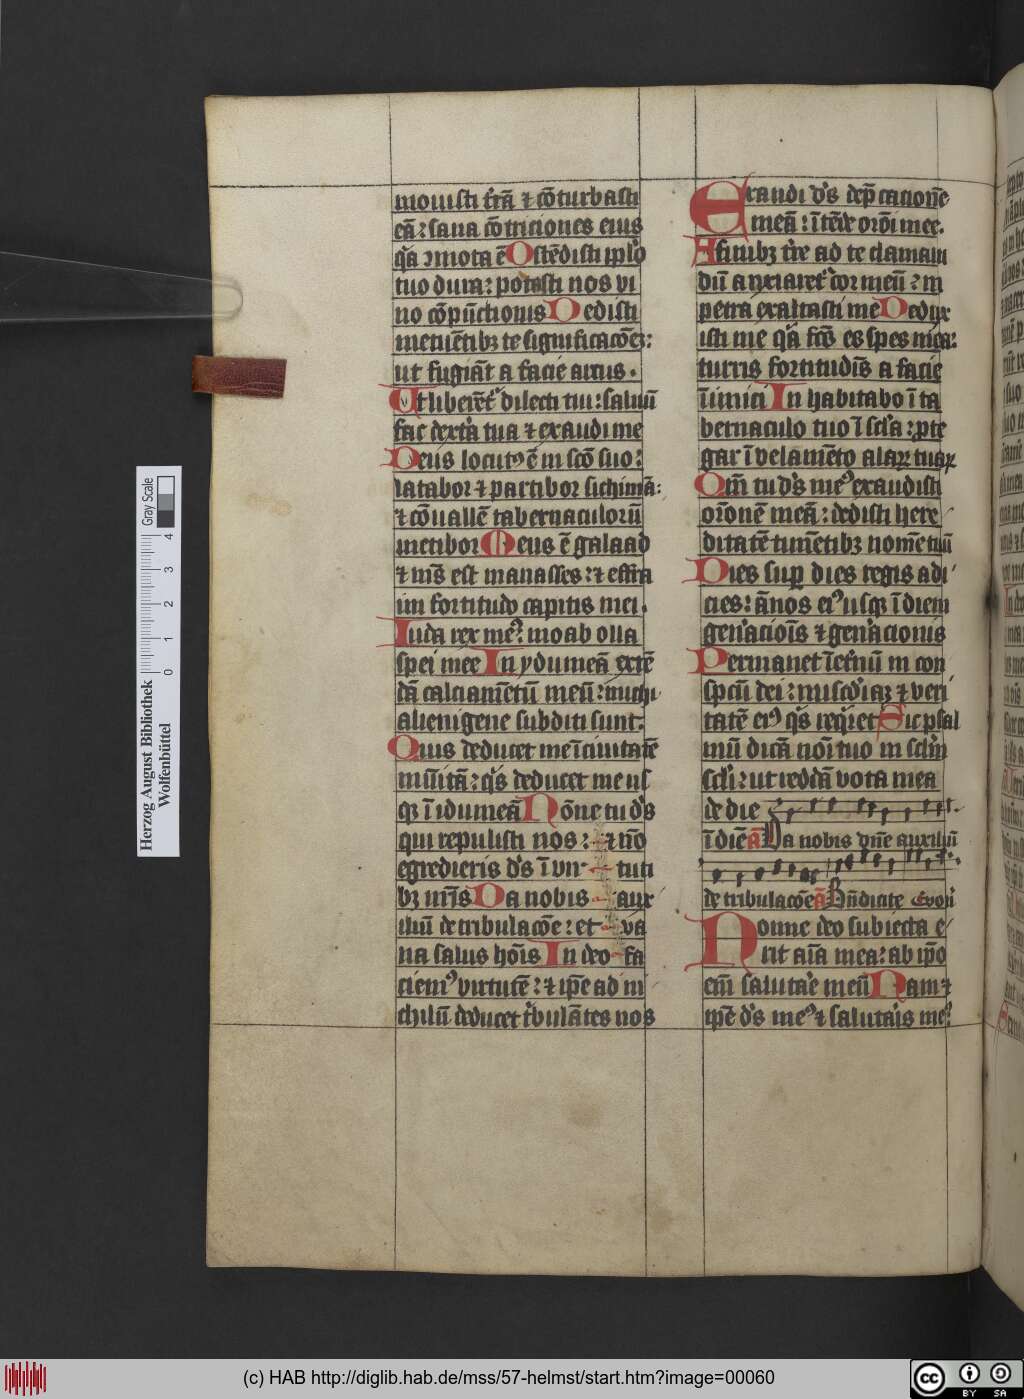 mouisti t̄rā ⁊ cō̄turbasti
eā: sana cō̄triciones eius
q̄a ɔmota ē Ostēdisti ip̄lo
tuo dura: potasti nos vi
no cōpūctionis Dedisti
metuētibꝫ te significacōeꝫ:
ut fugiāt a facie arcus.
Ut liberēt᷑ dilecti tui: saluū
fac dext̄a tua ⁊ exaudi me
Deus locutꝰ ē in sc̄o suo:
latabor ⁊ partibor sichimā:
⁊ cōuallē tabernaculorū
metibor Meus ē galaad
⁊ m̄s est manasses: ⁊ effra
im fortitudo capitis mei.
Iuda rex meꝰ: moab olla
spei mee In ydumeā extē
dā calciamētū meū: michi
alienigene subditi sunt.
Quis deducet me ī ciuitatē
munitā: q̄s deducet me us
qꝫ ī idumeā Nōne tu d̄s
qui repulisti nos: ⁊ nō
egredieris d̄s ī vir tuti
bꝫ nr̄is Da nobis aux
iliū de tribulacōe: et va
na salus hoīs In deo fa
ciemꝰ virtutē: ⁊ ip̄e ad ni
chilū deducet t̄bulātes nos
Exaudi d̄s dep̄cacionē
meā: ītēde or̄oni mee.
A finibꝫ t̄re ad te clamaui
dū anxiaret᷑ cor meū: in
petra exaltasti me Dedux
isti me q̄a fc̄s es spes mea:
turris fortitudīs a facie
īimici In habitabo ī ta
bernaculo tuo ī sc̄la: ꝓte
gar ī velamēto alaꝝ tuaꝝ
Qm̄ tu d̄s meꝰ exaudisti
or̄onē meā: dedisti here
ditatē timētibꝫ nomē tuū
Dies sup̄ dies regis adi
cies: ānos eiꝰ usqꝫ ī diem
gen̄acioīs ⁊ gen̄acionis
Permanet ī et̄nū in con
spc̄ū dei: mis̄cdiaꝫ ⁊ veri
tatē eiꝰ q̄s req̄ret Sic psal
mū dicā noī tuo in sc̄lm
sc̄li: ut reddā vota mea
de die
ī diē a̅ Da nobis dn̄e auxiliū
de tribulacōe a̅ Bn̄dicite Euou
Nonne deo subiecta e
rit aīa mea: ab ip̄o
em̄ saluta᷑e meū Nam ⁊
ip̄e d̄s meꝰ ⁊ saluta᷑is meꝰ:
Gray Scale
0 1 2 3 4
Herzog August Bibliothek
Wolfenbüttel
(c) HAB http://diglib.hab.de/mss/57-helmst/start.htm?image=00060
cc
BY SA